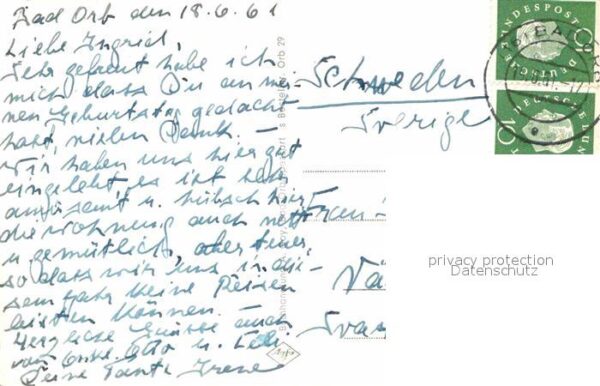 Bad Orb den 18.6.61
Liebe Ingrid,
Sehr gefreut habe ich
mich dass Du an mei-
nen Geburtstag gedacht
hast, vielen Dank. -
Wir haben uns hier gut
eingelebt, es ist sehr
amüsant u. hübsch hier
die Wohnung auch nett
u. gemütlich, aber teuer,
so dass wir uns in die-
sem Jahr keine Reisen
leisten können.
Herzliche Grüsse auch
von Onkel Otto u.
Deine Tante Irene
Schweden
Sverige
Frau
Svas
Orb 29
DEUTSCHE BUNDESPOST
10
DEUTSCHE BUNDESPOST
10
privacy protection
Datenschutz